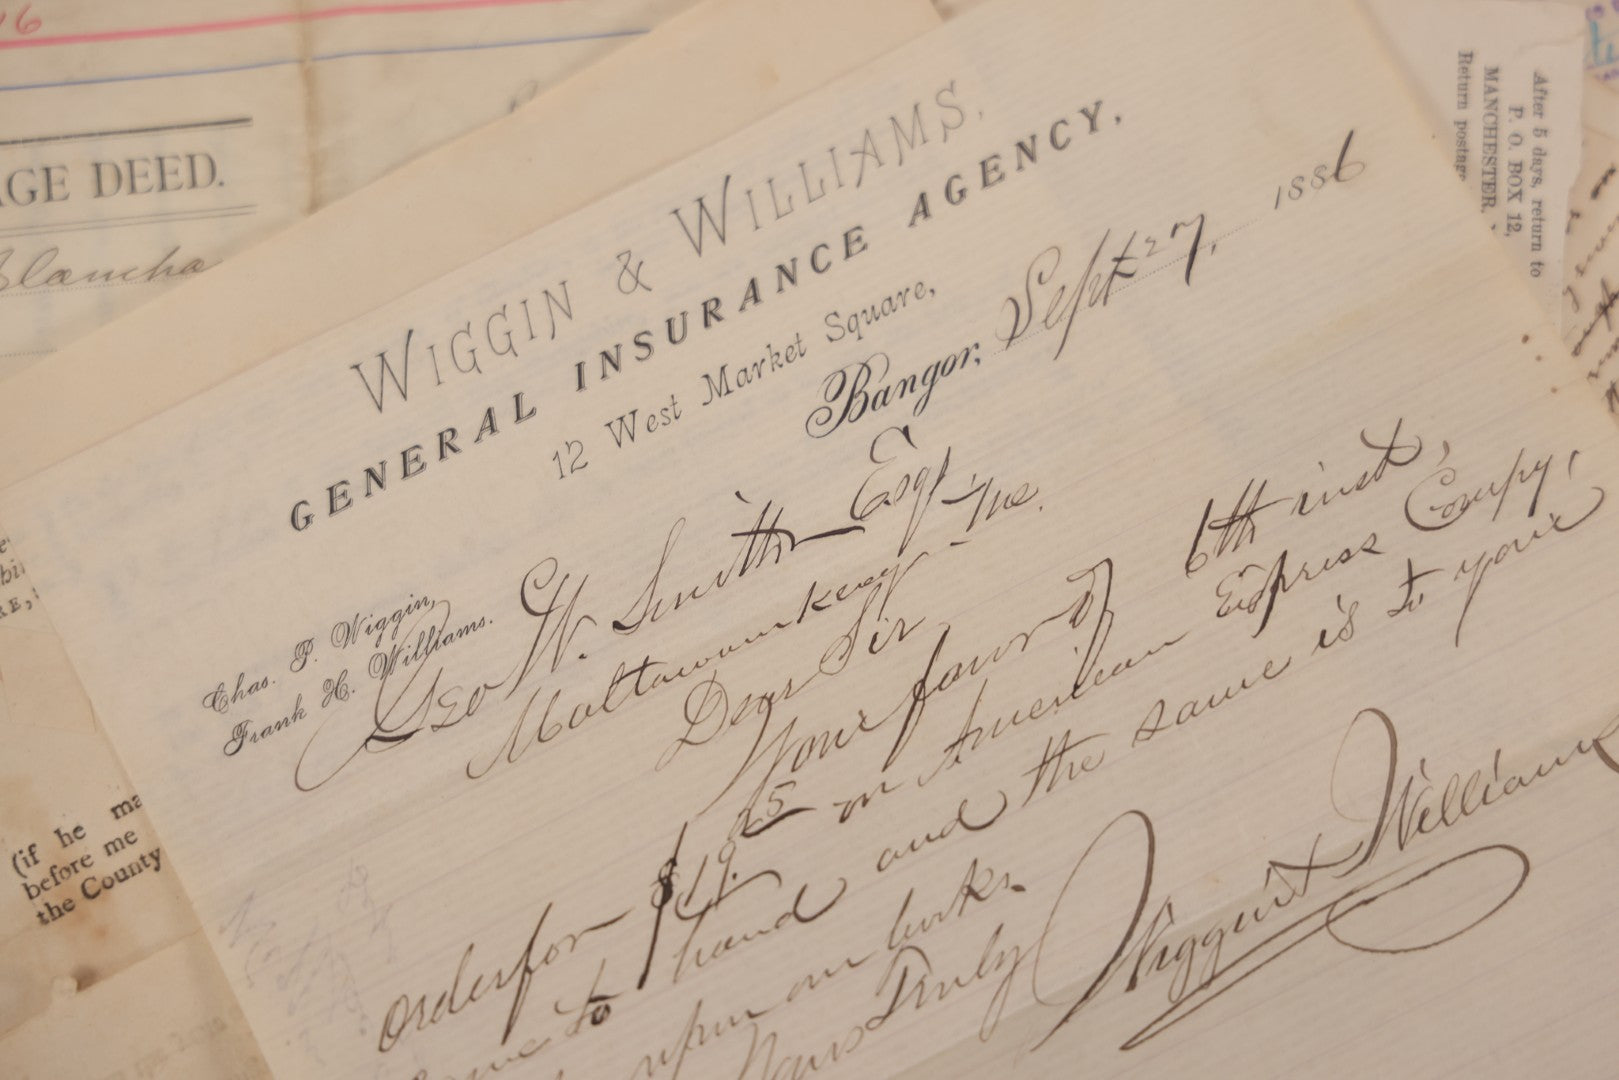 16
GE DEED.
Blancha
WIGGIN & WILLIAMS.
GENERAL INSURANCE AGENCY.
12 West Market Square,
Bangor, Sept 27, 1886
Chas. P. Wiggin,
Frank H. Williams.
Geo W. Smith Esqr
Mattawamkeag - Me.
Dear Sir
Your favor of 6th inst,
order for $19.25 on American Express Compy,
to hand and the same is to your
upon our books.
Yours Truly
Wiggin & Williams
After 5 days, return to
P. O. BOX 12,
MANCHESTER,
Return postage
(if he ma
before me
the County